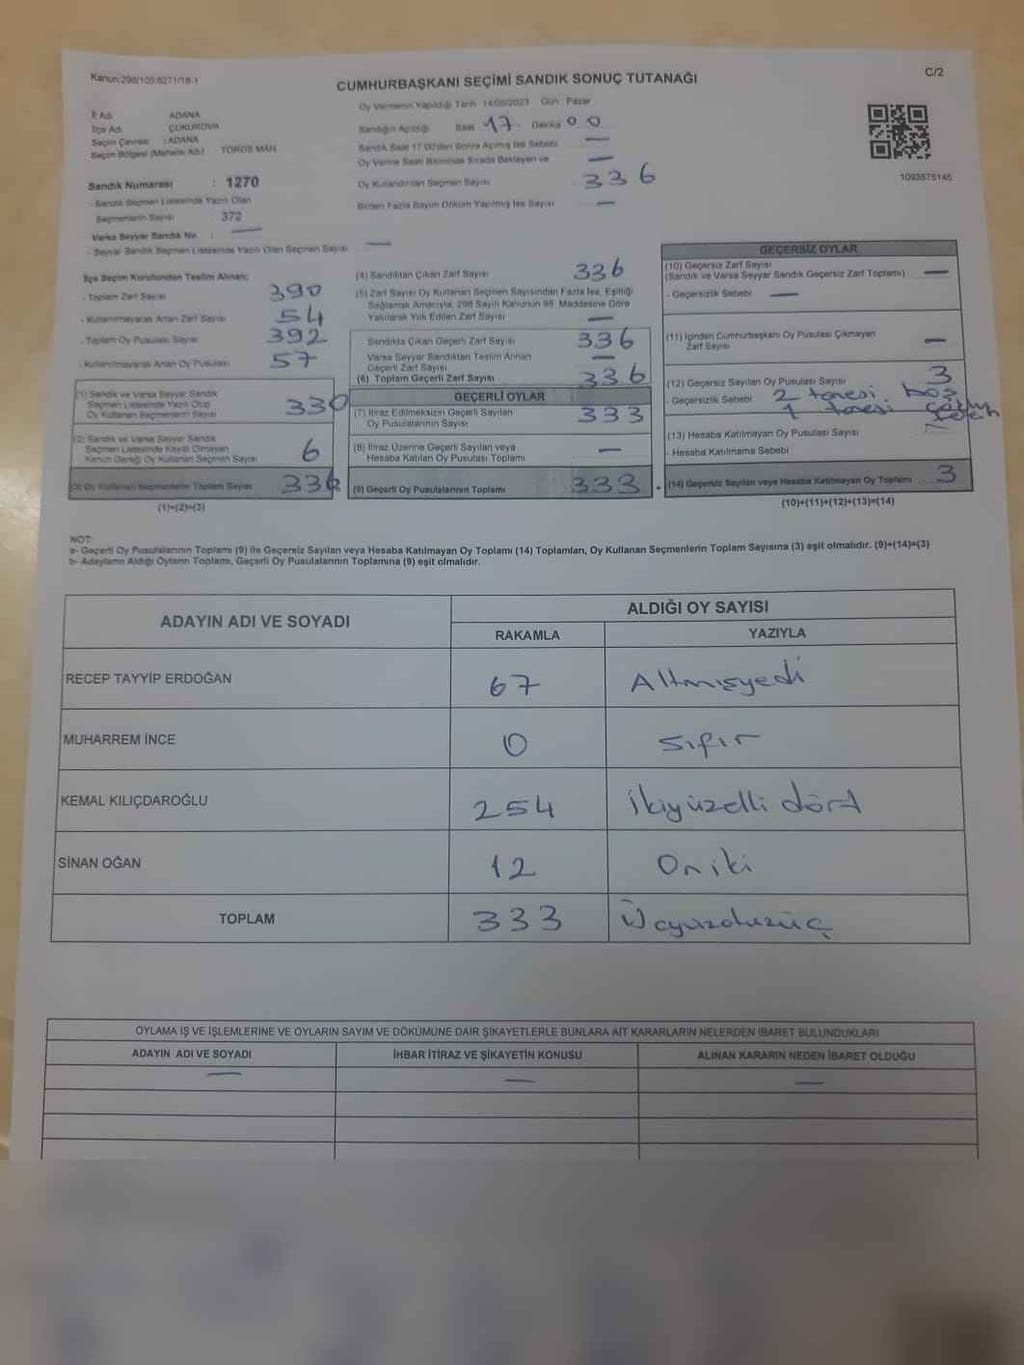 Kanun:298/105.6271/18-1
C/2
CUMHURBAŞKANI SEÇİMİ SANDIK SONUÇ TUTANAĞI
Oy Vermenin Yapıldığı Tarih 14/05/2023 Gün Pazar
İl Adı ADANA
İlçe Adı ÇUKUROVA
Seçim Çevresi : ADANA
Seçim Bölgesi (Mahalle Adı) : TOROS MAH.
Sandığın Açıldığı Saat 17 Dakika 00
Sandık Saat 17.00'den Sonra Açılmış İse Sebebi —
Oy Verme Saati Bitiminde Sırada Bekleyen ve —
Oy Kullandırılan Seçmen Sayısı 336
Birden Fazla Sayım Döküm Yapılmış İse Sayısı —
1093575145
Sandık Numarası : 1270
- Sandık Seçmen Listesinde Yazılı Olan
Seçmenlerin Sayısı 372
Varsa Seyyar Sandık No : —
- Seyyar Sandık Seçmen Listesinde Yazılı Olan Seçmen Sayısı —
İlçe Seçim Kurulundan Teslim Alınan;
- Toplam Zarf Sayısı 390
- Kullanılmayarak Artan Zarf Sayısı 54
- Toplam Oy Pusulası Sayısı 392
- Kullanılmayarak Artan Oy Pusulası 57
(1) Sandık ve Varsa Seyyar Sandık
Seçmen Listesinde Yazılı Olup
Oy Kullanan Seçmenlerin Sayısı 330
(2) Sandık ve Varsa Seyyar Sandık
Seçmen Listesinde Kayıtlı Olmayan
Kanun Gereği Oy Kullanan Seçmen Sayısı 6
(3) Oy Kullanan Seçmenlerin Toplam Sayısı 336
(1)+(2)=(3)
(4) Sandıktan Çıkan Zarf Sayısı 336
(5) Zarf Sayısı Oy Kullanan Seçmen Sayısından Fazla İse, Eşitliği
Sağlamak Amacıyla, 298 Sayılı Kanunun 98. Maddesine Göre
Yakılarak Yok Edilen Zarf Sayısı —
Sandıkta Çıkan Geçerli Zarf Sayısı 336
Varsa Seyyar Sandıktan Teslim Alınan
Geçerli Zarf Sayısı —
(6) Toplam Geçerli Zarf Sayısı 336
GEÇERLİ OYLAR
(7) İtiraz Edilmeksizin Geçerli Sayılan
Oy Pusulalarının Sayısı 333
(8) İtiraz Üzerine Geçerli Sayılan veya
Hesaba Katılan Oy Pusulası Toplamı —
(9) Geçerli Oy Pusulalarının Toplamı 333
GEÇERSİZ OYLAR
(10) Geçersiz Zarf Sayısı
(Sandık ve Varsa Seyyar Sandık Geçersiz Zarf Toplamı) —
- Geçersizlik Sebebi —
(11) İçinden Cumhurbaşkanı Oy Pusulası Çıkmayan
Zarf Sayısı —
(12) Geçersiz Sayılan Oy Pusulası Sayısı 3
- Geçersizlik Sebebi 2 tanesi boş
1 tanesi
(13) Hesaba Katılmayan Oy Pusulası Sayısı
- Hesaba Katılmama Sebebi
(14) Geçersiz Sayılan veya Hesaba Katılmayan Oy Toplamı 3
(10)+(11)+(12)+(13)=(14)
NOT:
a- Geçerli Oy Pusulalarının Toplamı (9) ile Geçersiz Sayılan veya Hesaba Katılmayan Oy Toplamı (14) Toplamları, Oy Kullanan Seçmenlerin Toplam Sayısına (3) eşit olmalıdır. (9)+(14)=(3)
b- Adayların Aldığı Oyların Toplamı, Geçerli Oy Pusulalarının Toplamına (9) eşit olmalıdır.
ADAYIN ADI VE SOYADI
ALDIĞI OY SAYISI
RAKAMLA YAZIYLA
RECEP TAYYİP ERDOĞAN 67 Altmışyedi
MUHARREM İNCE 0 sıfır
KEMAL KILIÇDAROĞLU 254 İkiyüzelli dört
SİNAN OĞAN 12 Oniki
TOPLAM 333 Üçyüzotuzüç
OYLAMA İŞ VE İŞLEMLERİNE VE OYLARIN SAYIM VE DÖKÜMÜNE DAİR ŞİKAYETLERLE BUNLARA AİT KARARLARIN NELERDEN İBARET BULUNDUKLARI
ADAYIN ADI VE SOYADI İHBAR İTİRAZ VE ŞİKAYETİN KONUSU ALINAN KARARIN NEDEN İBARET OLDUĞU
— — —